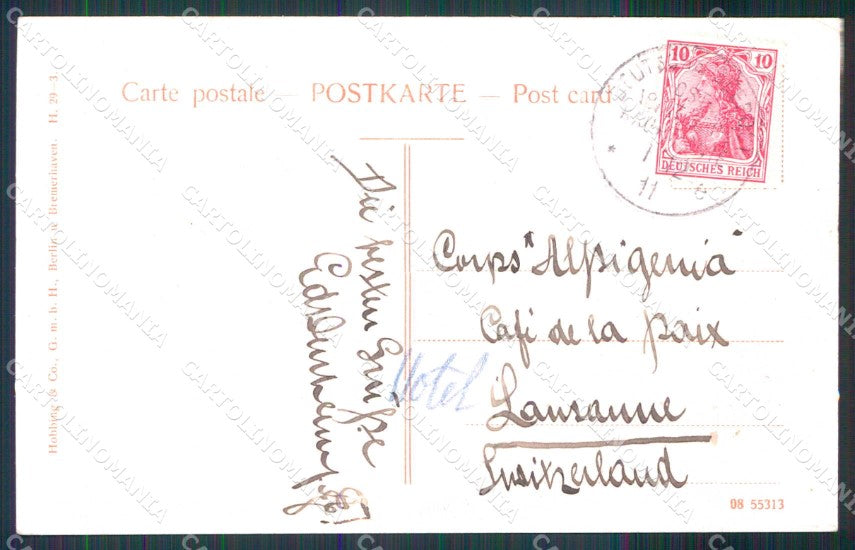 Carte postale — POSTKARTE — Post card
10 10
DEUTSCHES REICH
11
Hobbing & Co., G. m. b. H., Berlin u. Bremerhaven. H. 29 3.
Die besten Grüße
Corps "Alpigenia"
Café de la paix
Hotel
Lausanne
Switzerland
08 55313
CARTOLINOMANIA